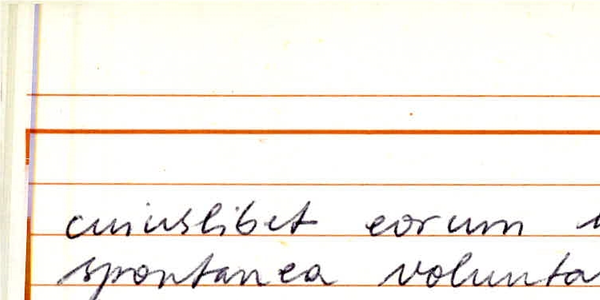 cuiuslibet eorum
spontanea volunta